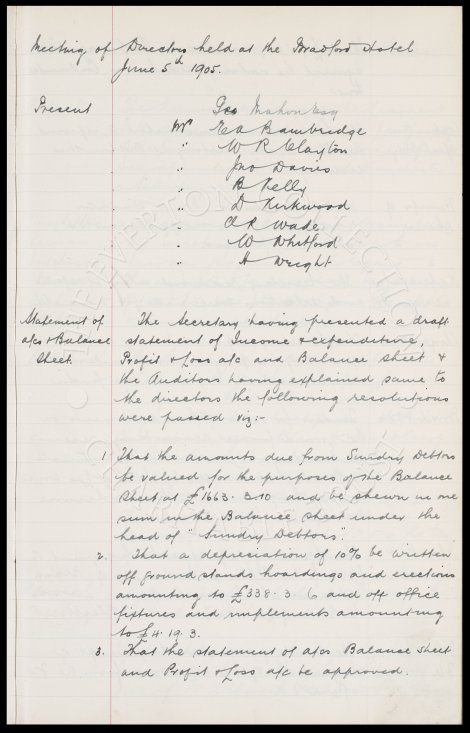 Meeting of Directors held at the Bradford Hotel
June 5th 1905.
Present Geo Mahon Esq
Mr E A Bainbridge
" W R Clayton
" Jno Davies
" B Kelly
" D Kirkwood
" A R Wade
" W Whitford
" H Wright
Statement of The Secretary having presented a draft
a/cs & Balance statement of Income & expenditure,
Sheet. Profit & Loss a/c and Balance Sheet &
the Auditors having explained same to
the directors the following resolutions
were passed viz:-
1 That the amounts due from Sundry Debtors
be valued for the purposes of the Balance
Sheet at £1663.3.10 and be shewn in one
sum in the Balance sheet under the
head of "Sundry Debtors".
2. That a depreciation of 10% be written
off ground stands hoardings and erections
amounting to £338.3.6 and off office
fixtures and implements amounting
to £4.19.3.
3. That the statement of a/cs Balance Sheet
and Profit & Loss a/c be approved.
THE EVERTON COLLECTION